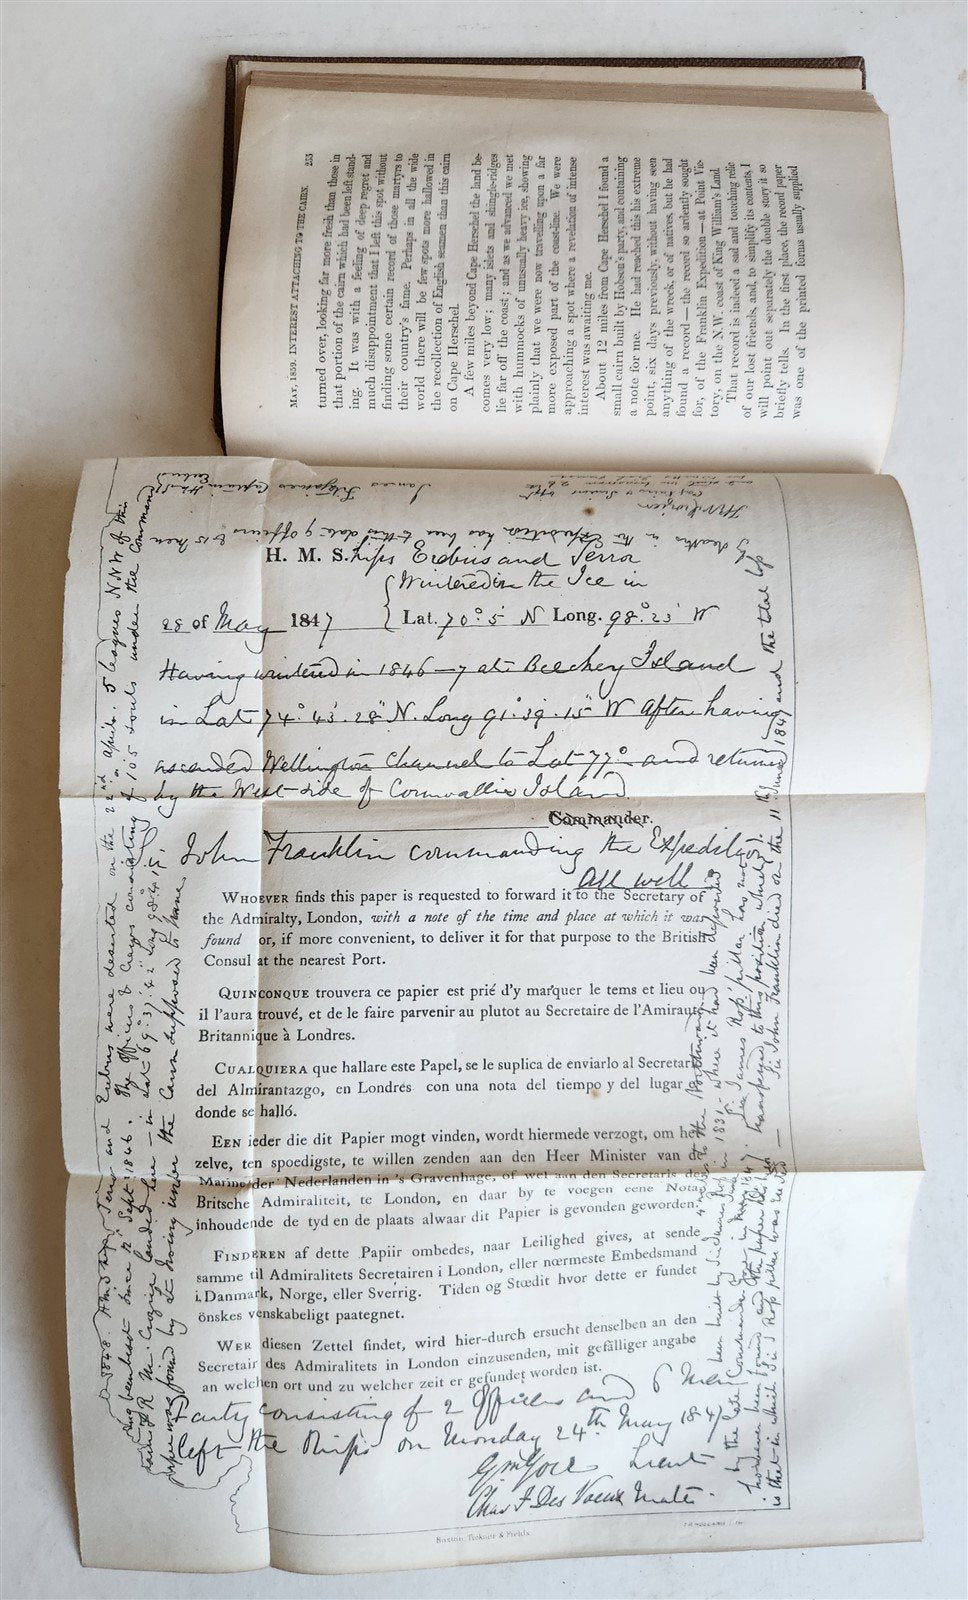 MAY, 1859. INTEREST ATTACHING TO THE CAIRN. 255
turned over, looking far more fresh than those in
that portion of the cairn which had been left stand-
ing. It was with a feeling of deep regret and
much disappointment that I left this spot without
finding some certain record of those martyrs to
their country's fame. Perhaps in all the wide
world there will be few spots more hallowed in
the recollection of English seamen than this cairn
on Cape Herschel.
A few miles beyond Cape Herschel the land be-
comes very low; many islets and shingle-ridges
lie far off the coast; and as we advanced we met
with hummocks of unusually heavy ice, showing
plainly that we were now travelling upon a far
more exposed part of the coast-line. We were
approaching a spot where a revelation of intense
interest was awaiting me.
About 12 miles from Cape Herschel I found a
small cairn built by Hobson's party, and containing
a note for me. He had reached this his extreme
point, six days previously, without having seen
anything of the wreck, or of natives, but he had
found a record — the record so ardently sought
for, of the Franklin Expedition — at Point Vic-
tory, on the N.W. coast of King William's Land
That record is indeed a sad and touching relic
of our lost friends, and, to simplify its contents, I
will point out separately the double story it so
briefly tells. In the first place, the record paper
was one of the printed forms usually supplied
H. M. Ships Erebus and Terror
Wintered in the Ice in
28 of May 1847 Lat. 70° 5' N Long. 98° 23' W
Having wintered in 1846-7 at Beechey Island
in Lat 74° 43' 28" N. Long 91° 39' 15" W After having
ascended Wellington Channel to Lat 77° and returned
by the West side of Cornwallis Island.
Commander.
John Franklin commanding the Expedition
All well
WHOEVER finds this paper is requested to forward it to the Secretary of
the Admiralty, London, with a note of the time and place at which it was
found or, if more convenient, to deliver it for that purpose to the British
Consul at the nearest Port.
QUINCONQUE trouvera ce papier est prié d'y marquer le tems et lieu ou
il l'aura trouvé, et de le faire parvenir au plutot au Secretaire de l'Amirauté
Britannique à Londres.
CUALQUIERA que hallare este Papel, se le suplica de enviarlo al Secretario
del Almirantazgo, en Londrés con una nota del tiempo y del lugar
donde se halló.
EEN ieder die dit Papier mogt vinden, wordt hiermede verzogt, om het
zelve, ten spoedigste, te willen zenden aan den Heer Minister van de
Marine der Nederlanden in 's Gravenhage, of wel aan den Secretaris der
Britsche Admiraliteit, te London, en daar by te voegen eene Nota
inhoudende de tyd en de plaats alwaar dit Papier is gevonden geworden.
FINDEREN af dette Papiir ombedes, naar Leilighed gives, at sende
samme til Admiralitets Secretairen i London, eller nœrmeste Embedsmand
i Danmark, Norge, eller Sverrig. Tiden og Stœdit hvor dette er fundet
önskes venskabeligt paategnet.
WER diesen Zettel findet, wird hier-durch ersucht denselben an den
Secretair des Admiralitets in London einzusenden, mit gefälliger angabe
an welchen ort und zu welcher zeit er gefundet worden ist.
Party consisting of 2 Officers and 6 Men
left the Ships on Monday 24th May 1847
Gm Gore Lieut
Chas F Des Voeux Mate.
1848. HM Ships Terror and Erebus were deserted on the 22nd April. 5 leagues NNW of this
having been beset since 12th Sept 1846. The Officers & Crews consisting of 105 souls under the Command
of Captain F R M Crozier landed here - in Lat 69° 37' 42" Long 98° 41'
paper was found by Lt Irving under the Cairn supposed to have
been built by Sir James Ross in 1831 - where it had been deposited 4 miles to the Northward
by the late Commander Gore in June 1847. Sir James Ross' pillar has not
however been found and the paper has been transferred to this position which
is that in which Sir J Ross pillar was erected — Sir John Franklin died on the 11th June 1847 and the total loss
by deaths in the Expedition has been to this date 9 Officers & 15 Men
James Fitzjames Captain HMS Erebus
FRM Crozier
Captain & Senior Offr
Boston, Ticknor & Fields